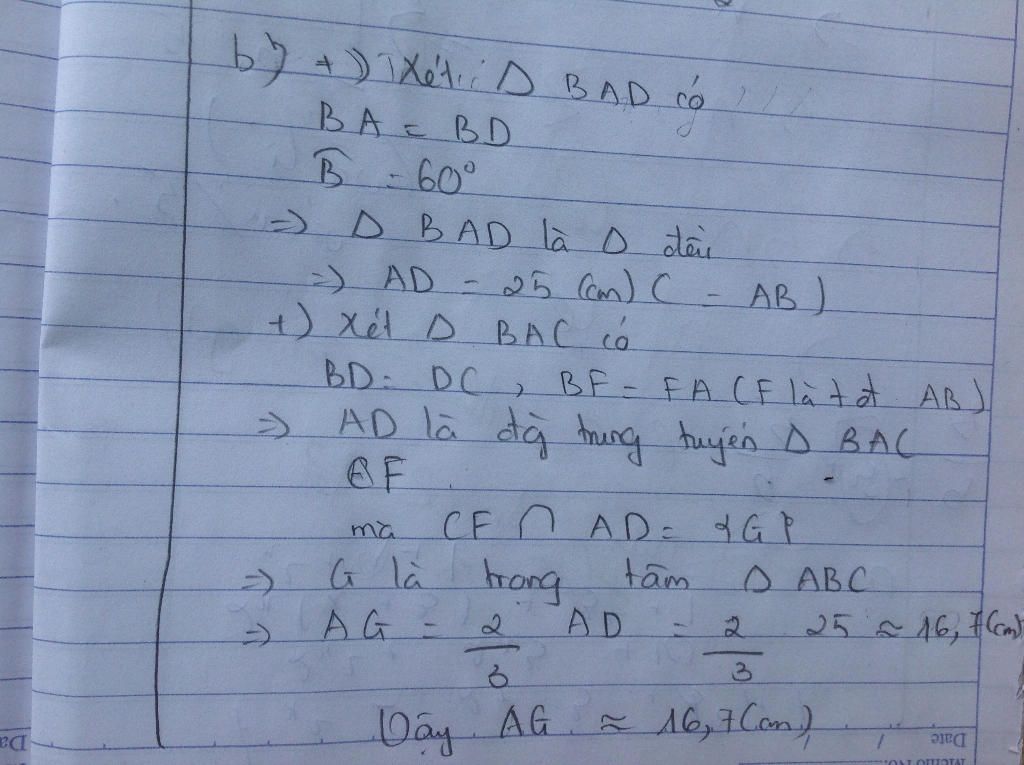 b) +) Xét Δ BAD có
BA = BD
B̂ = 60°
=> Δ BAD là Δ đều
=> AD = 25 (cm) ( = AB )
+) Xét Δ BAC có
BD = DC , BF = FA (F là t đ AB)
=> AD là đg trung tuyến Δ BAC
CF
mà CF ∩ AD = {G}
=> G là trọng tâm Δ ABC
=> AG = 2/3 AD = 2/3 25 ≈ 16,7 (cm)
Vậy AG ≈ 16,7 (cm)
Date